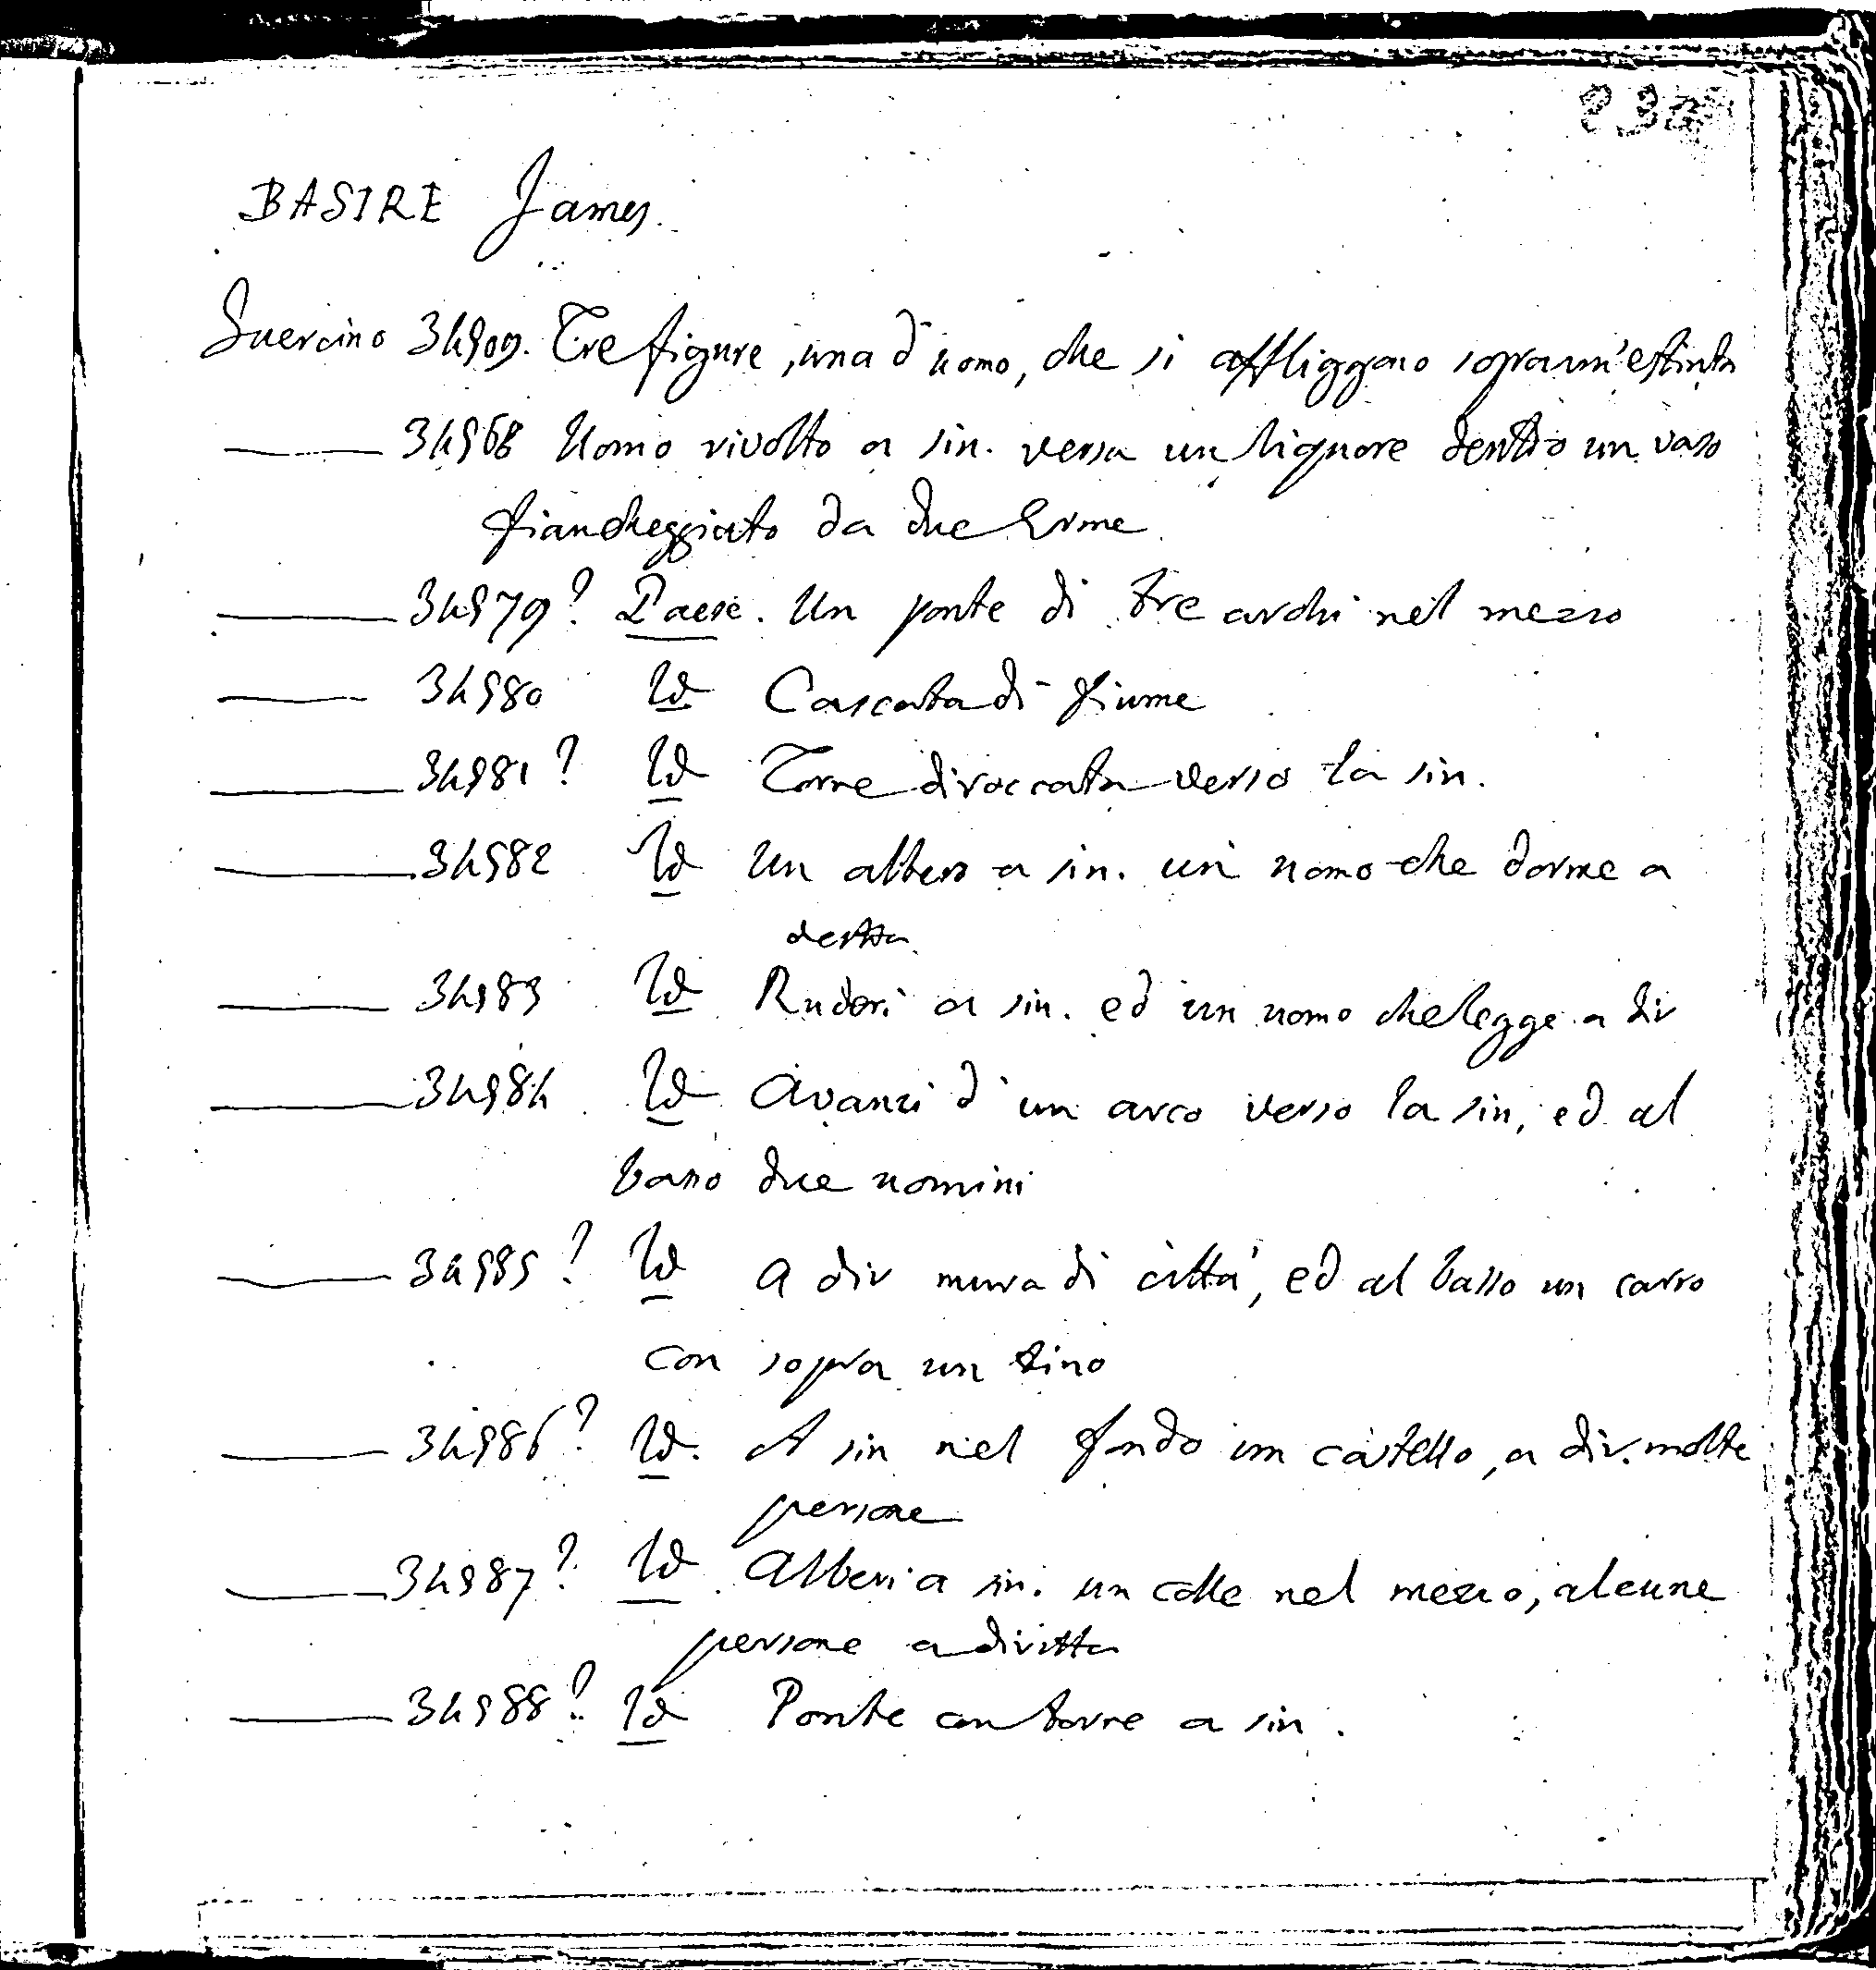 232
BASIRE James.
Guercino 34909. Tre figure, una d'uomo, che si affliggono sopra un'estinta
34968 Uomo rivolto a sin. versa un liquore dentro un vaso
fiancheggiato da due Erme
34979? Paese. Un ponte di tre archi nel mezzo
34980 Id Cascata di fiume
34981? Id Torre diroccata verso la sin.
34982 Id Un albero a sin. un uomo che dorme a
destra
34983 Id Ruderi a sin. ed un uomo che legge a dir
34984 Id Avanzi d'un arco verso la sin, ed al
basso due uomini
34985? Id A dir mura di città, ed al basso un carro
con sopra un tino
34986? Id. A sin nel fondo un castello, a dir. molte
persone
34987? Id Alberi a sin. un colle nel mezzo, alcune
persone a diritta
34988? Id Ponte con torre a sin.